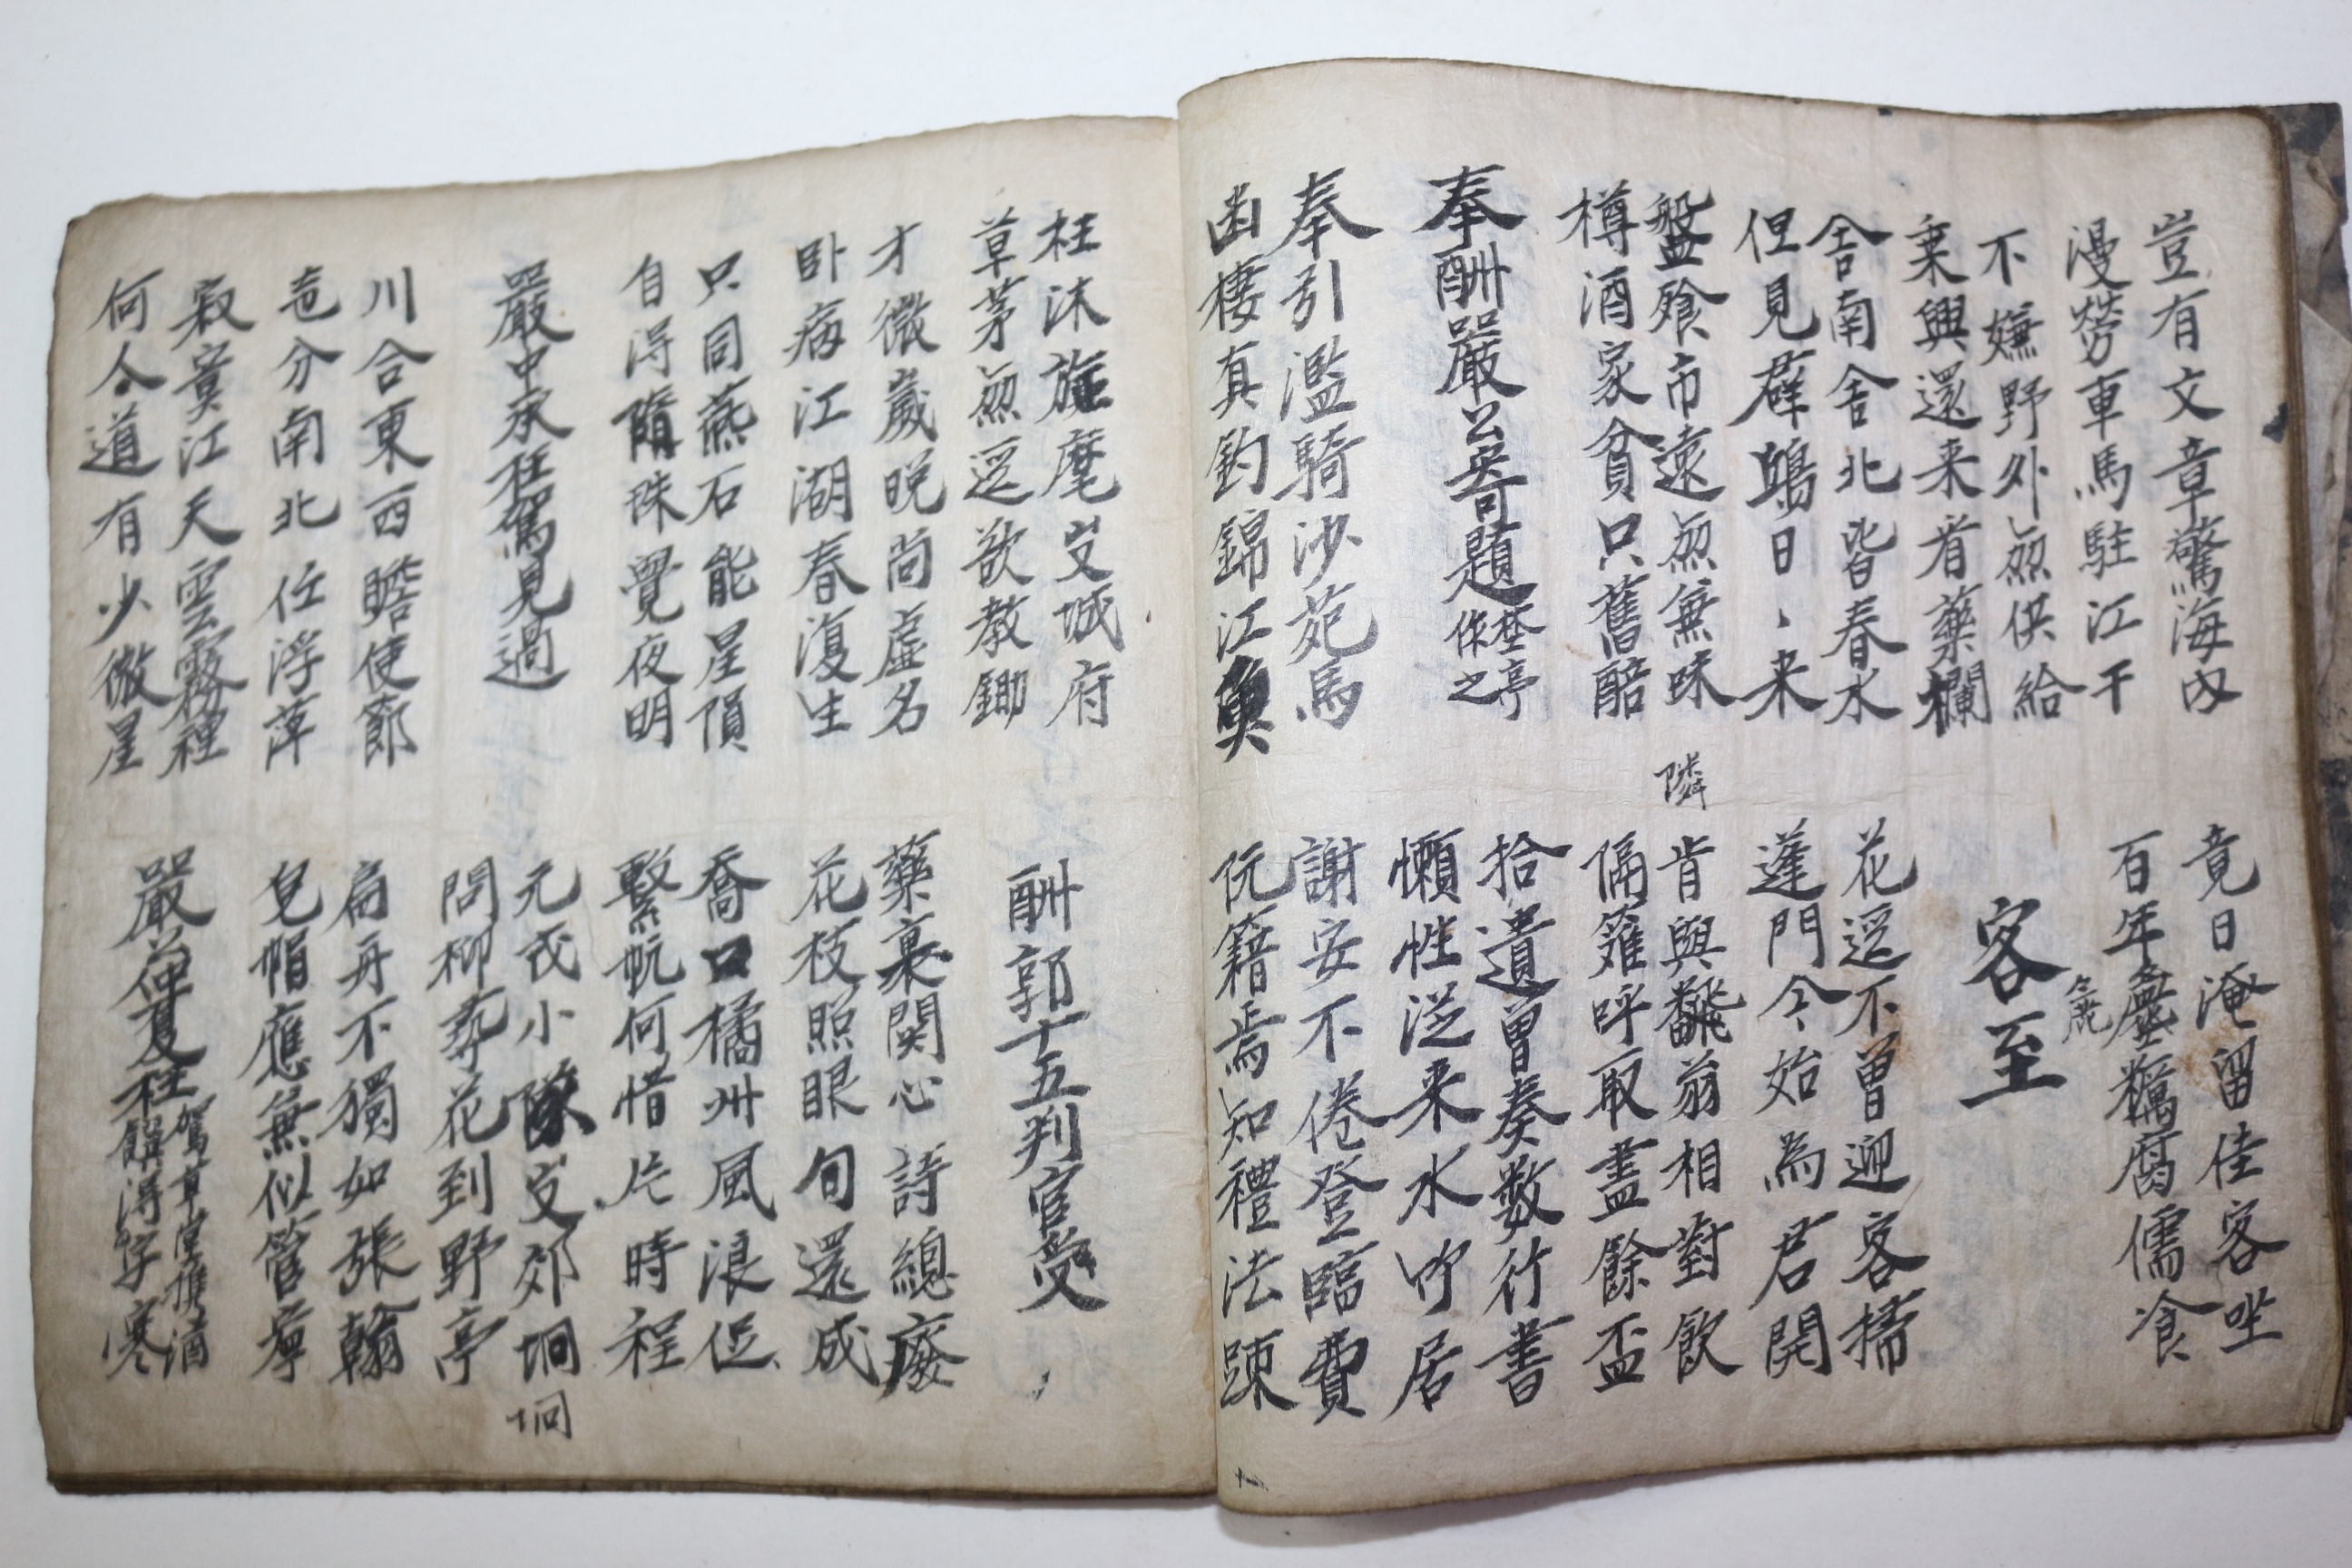 豈有文章驚海內
漫勞車馬駐江干
竟日淹留佳客坐
百年麤糲腐儒飡
麁
不嫌野外無供給
乘興還来看藥欄
客至
舍南舍北皆春水
但見群鷗日〻来
花逕不曾迎客掃
蓬門今始為君開
盤飱市遠無兼味
樽酒家貧只舊醅
隣
肯與鄰翁相對飲
隔籬呼取盡餘盃
奉酬嚴公寄題埜亭
作之
拾遺曾奏數行書
懶性從来水竹居
奉引濫騎沙苑馬
幽棲真釣錦江魚
謝安不倦登臨費
阮籍焉知禮法疎
枉沐旌麾出城府
草茅無逕欲教鋤
酬郭十五判官受
才微歲晚尚虛名
臥病江湖春復生
藥裹関心詩總廢
花枝照眼句還成
只同燕石能星隕
自得隋珠覺夜明
喬口橘州風浪促
繫帆何惜片時程
嚴中丞枉駕見過
元戎小隊出郊坰
坰
問柳尋花到野亭
川合東西瞻使節
地分南北任浮萍
扁舟不獨如張翰
皂帽應兼似管寧
寂寞江天雲霧裡
何人道有少微星
嚴公仲夏枉駕草堂携酒
饌得字寒